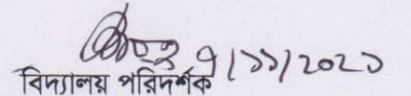 ৭/১১/২০২১
বিদ্যালয় পরিদর্শক